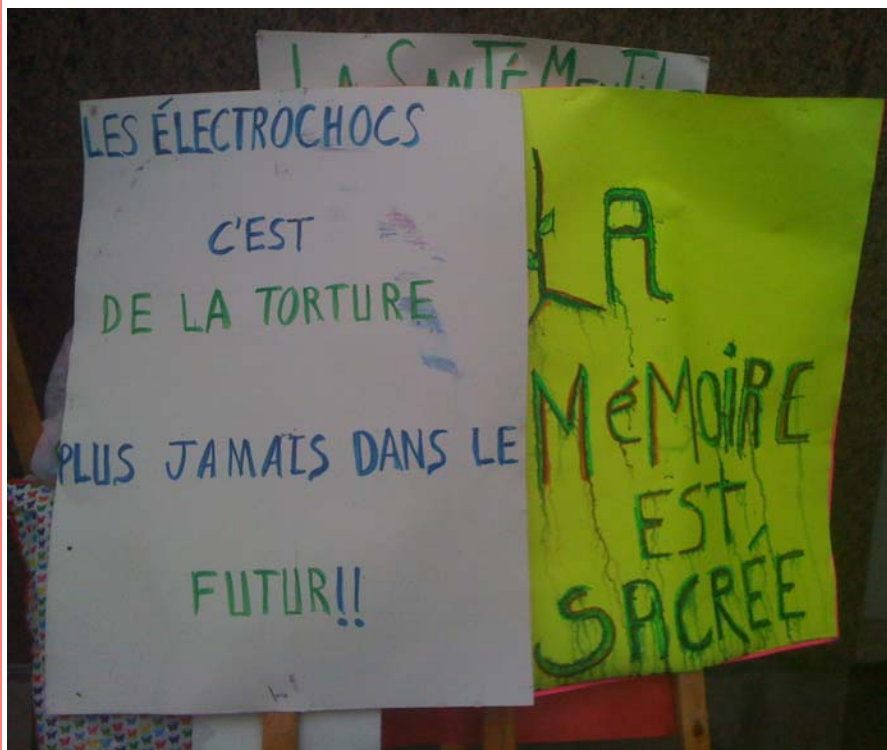 LA SANTÉ MENTALE
LES ÉLECTROCHOCS
C'EST
DE LA TORTURE
PLUS JAMAIS DANS LE
FUTUR!!
LA
MéMOiRE
EST
SACRÉE